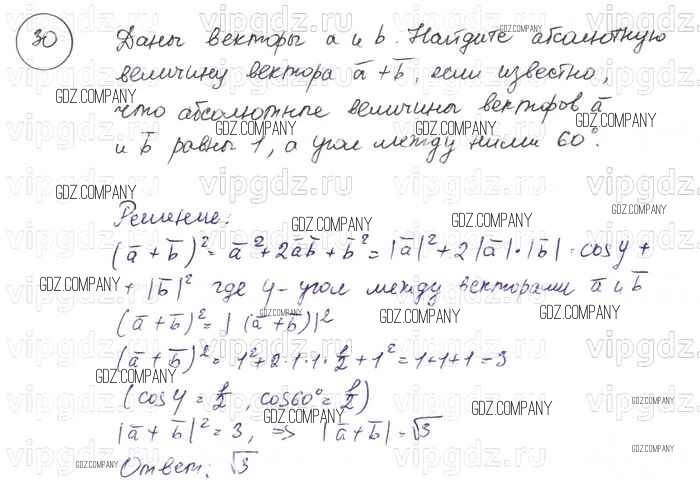 30
Даны векторы a и b. Найдите абсолютную
величину вектора a̅ + b̅, если известно,
что абсолютные величины векторов a̅
и b̅ равны 1, а угол между ними 60°.
Решение:
(a̅ + b̅)² = a̅² + 2a̅b̅ + b̅² = |a̅|² + 2|a̅|·|b̅|·cosφ +
+ |b̅|² где φ - угол между векторами a̅ и b̅
(a̅ + b̅)² = |(a̅ + b̅)|²
(a̅ + b̅)² = 1² + 2·1·1·1/2 + 1² = 1+1+1 = 3
(cosφ = 1/2, cos60° = 1/2)
|a̅ + b̅|² = 3, => |a̅ + b̅| = √3
Ответ: √3
GDZ.COMPANY
vipgdz.ru